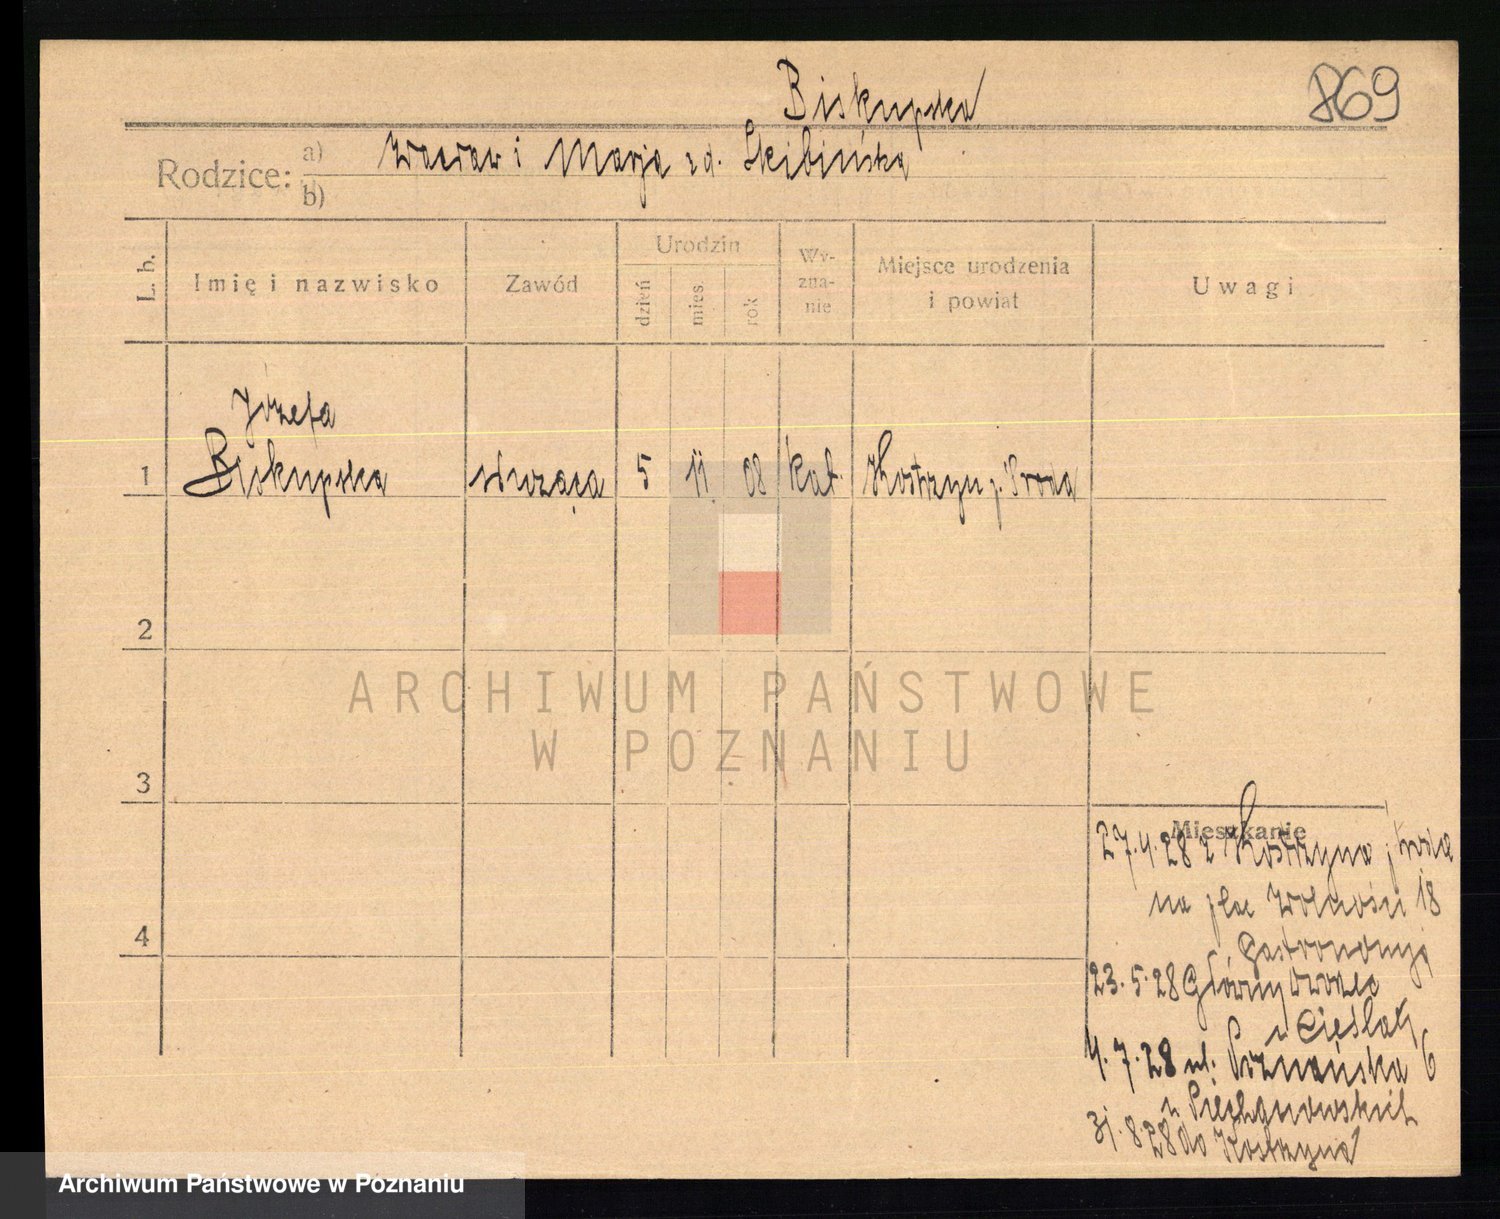 Biskupska
869
Rodzice: a) Wacław i Marja z d. Skibińska
b)
L. b.
Imię i nazwisko
Zawód
Urodzin
dzień
mies.
rok
Wy-
zna-
nie
Miejsce urodzenia
i powiat
Uwagi
Józefa
1 Biskupska służąca 5 11. 08 kat. Kostrzyn p. Środa
2
ARCHIWUM PAŃSTWOWE
W POZNANIU
3
Mieszkanie
27.4.28 z Kostrzyna p. Środa
na plac Wolności 18
Gastronomja
4
23.5.28 Główny Dworzec
u Cieślak
4.7.28 ul. Poznańska 6
u
31.8.28 do Kostrzyna
Archiwum Państwowe w Poznaniu